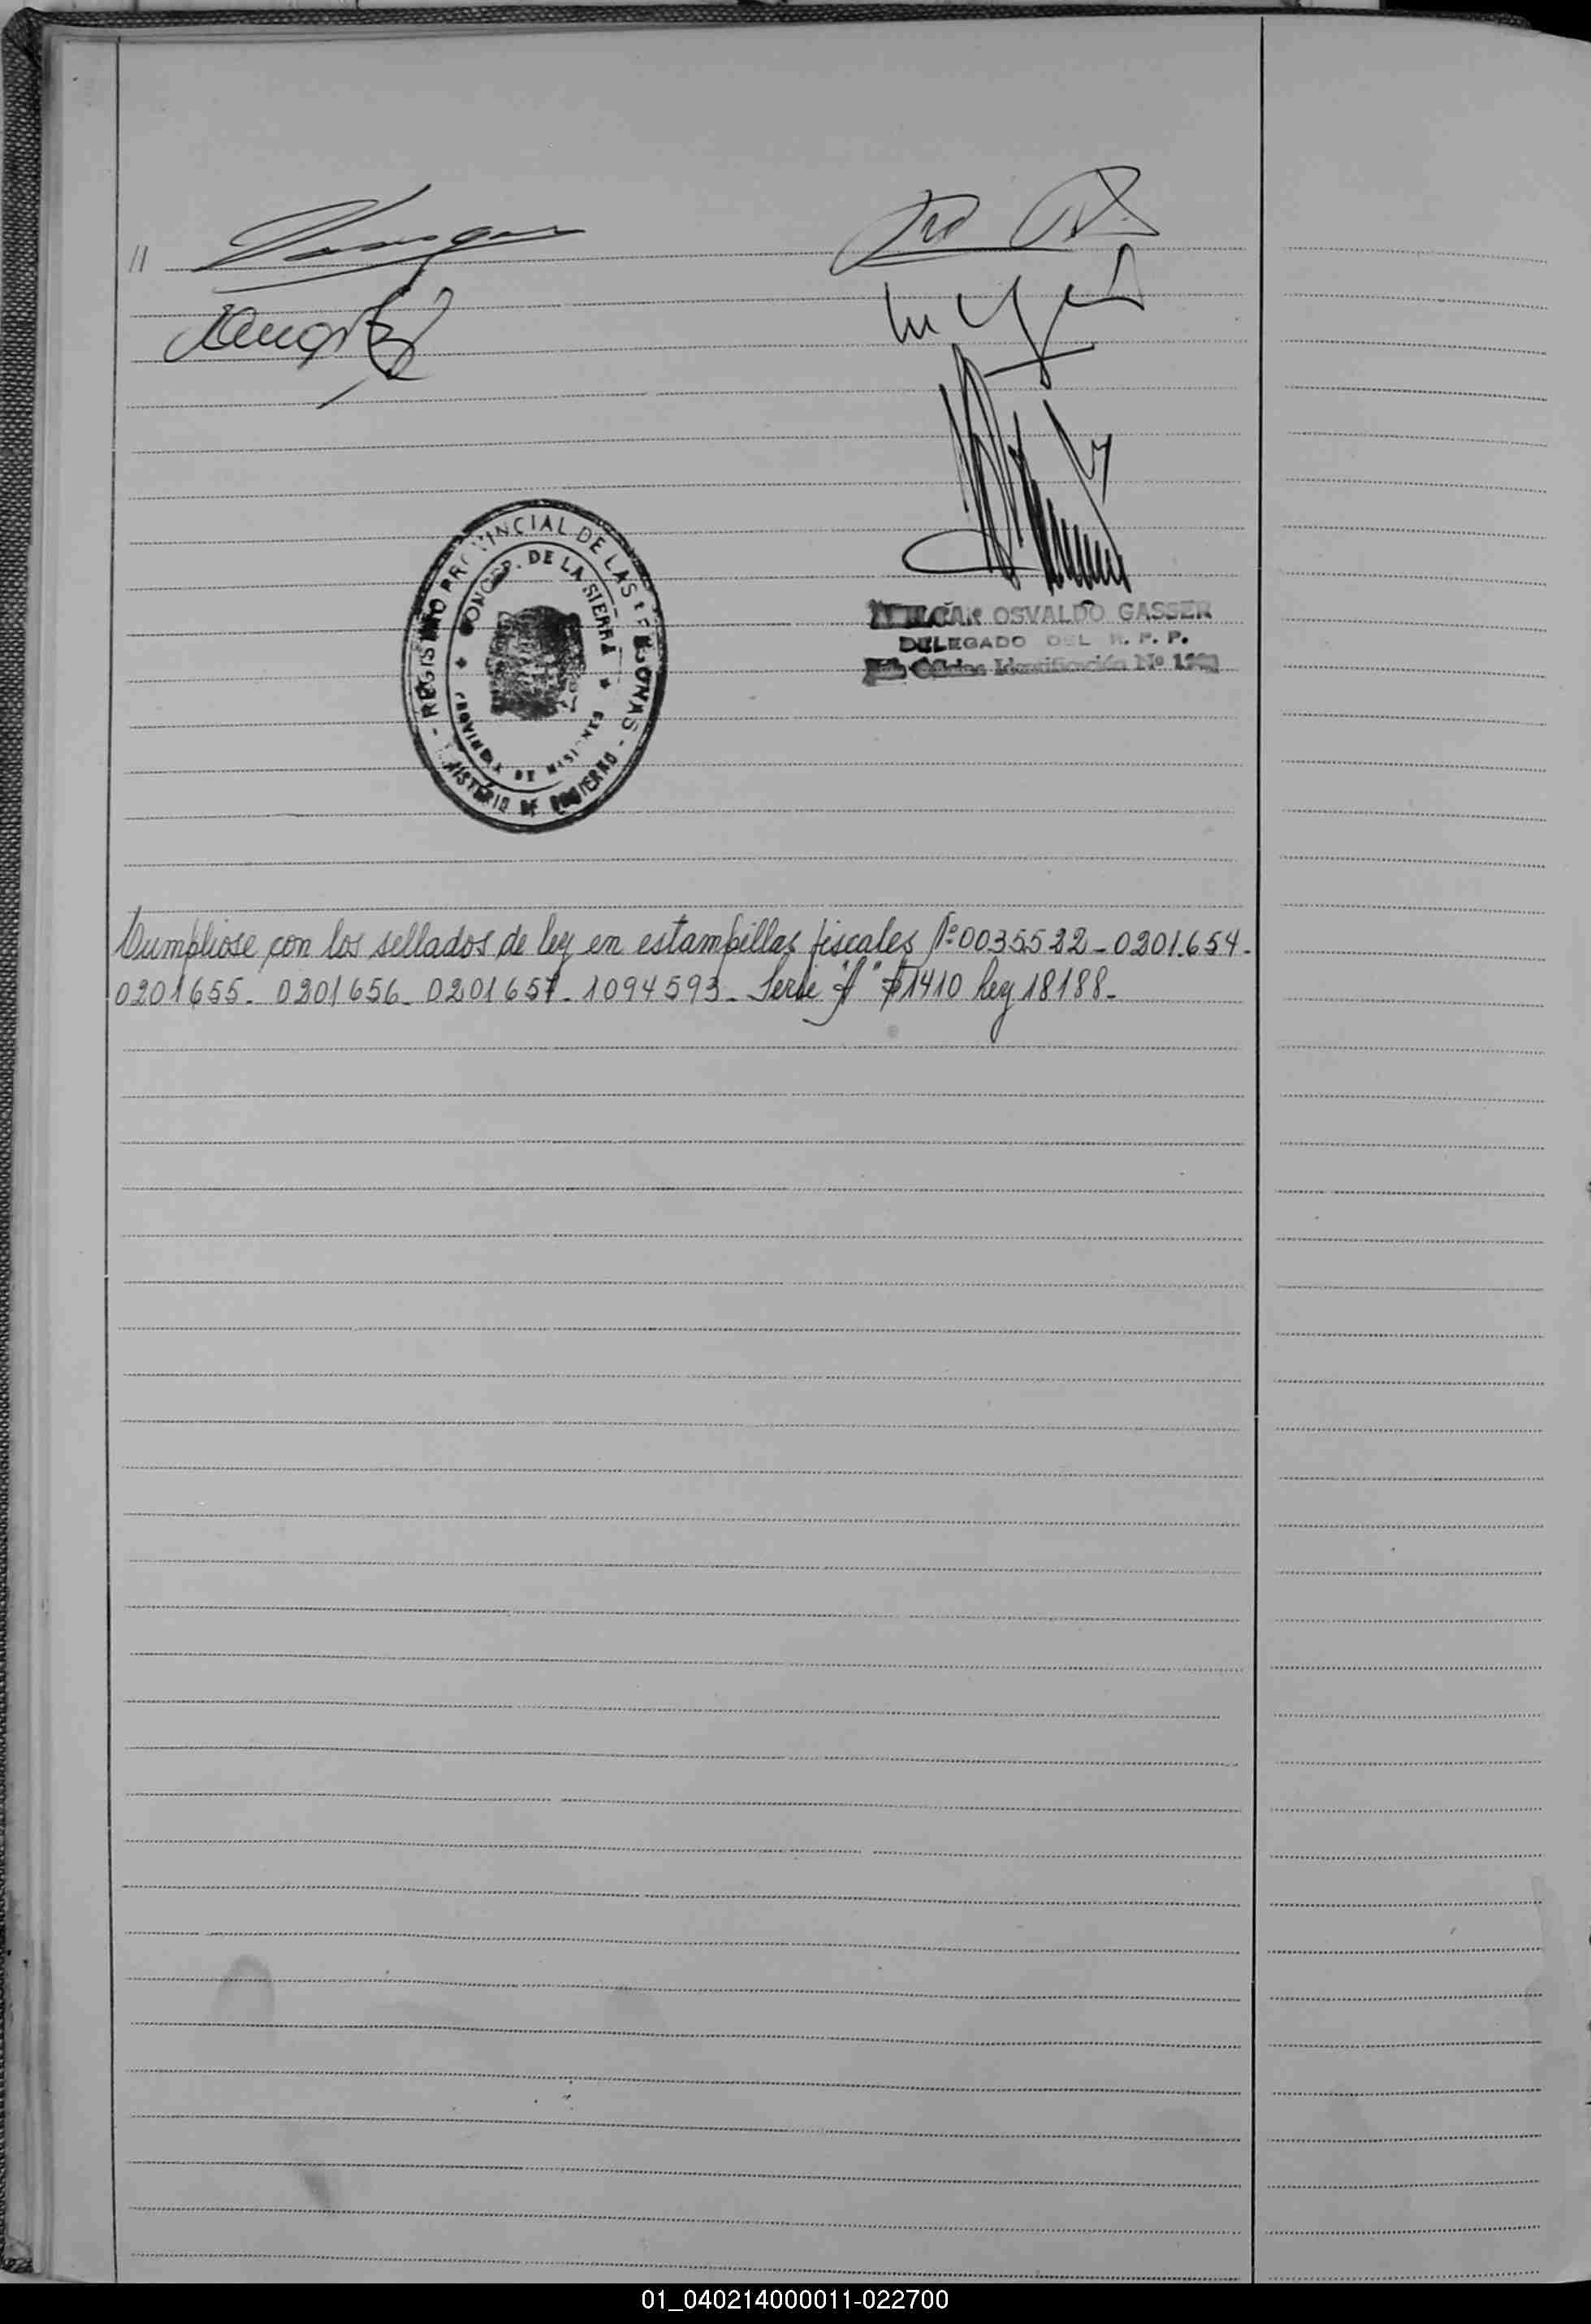 //
REGISTRO PROVINCIAL DE LAS PERSONAS - MINISTERIO DE GOBIERNO -
CONCEP. DE LA SIERRA
PROVINCIA DE MISIONES
OSVALDO GASSER
DELEGADO DEL R. P. P.
Oficina Identificación Nº
Cumpliose con los sellados de ley en estampillas fiscales Nº 0035522-0201654-
0201655- 0201656- 0201657- 1094593- Serie "A" $1410 Ley 18188-
01_040214000011-022700